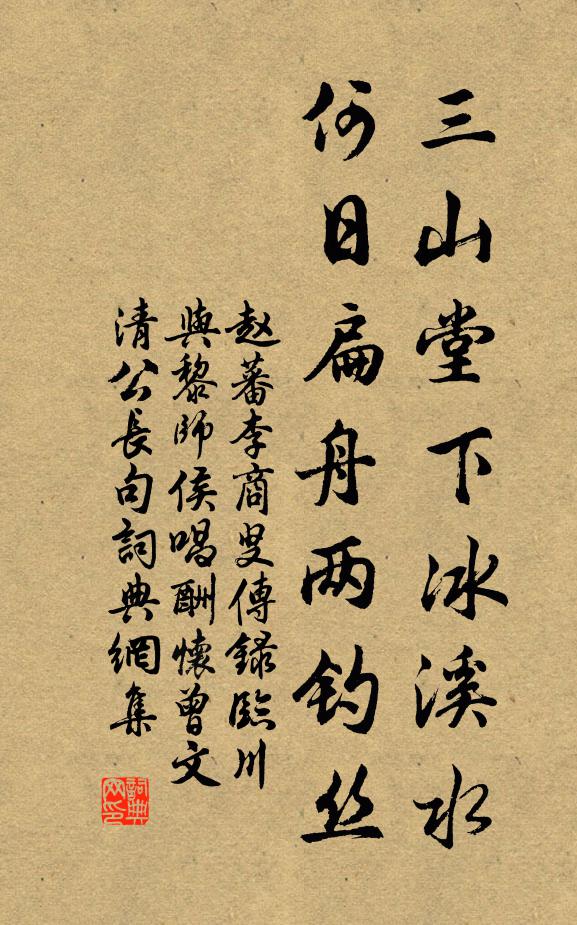 三山堂下冰溪水
何日扁舟两钓丝
赵蕃李商叟傳録臨川
與黎師侯唱酬懷曾文
清公長句詞典網集
詞典网印